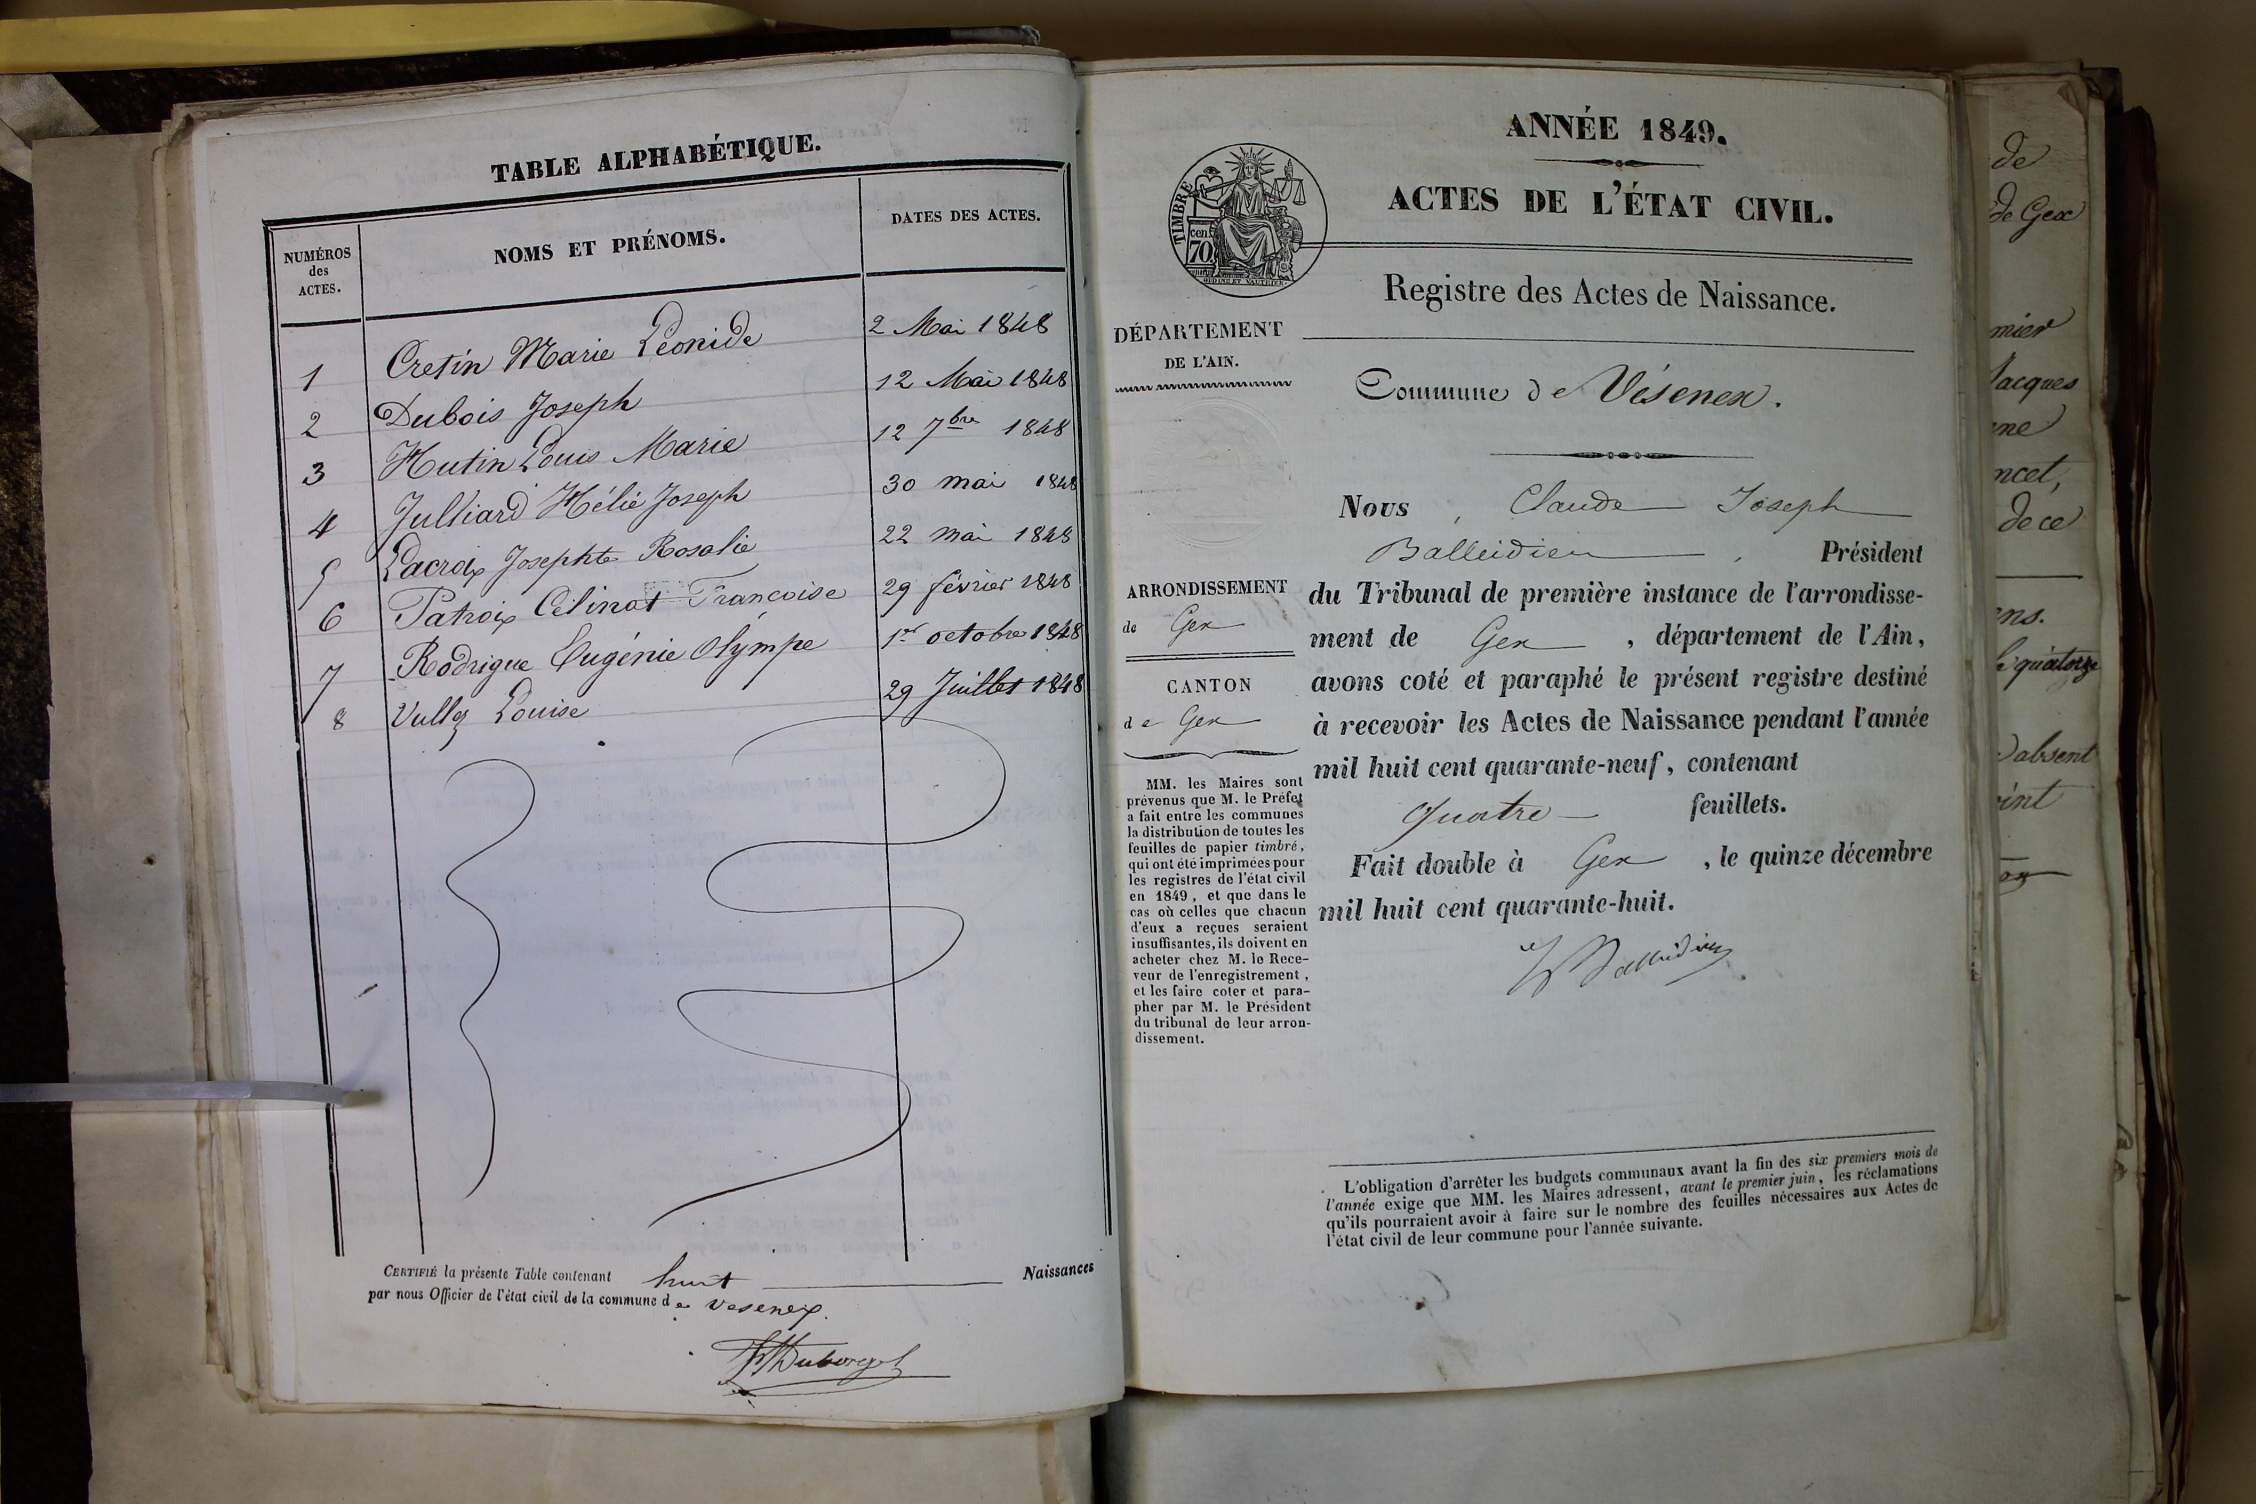 TABLE ALPHABÉTIQUE.
NUMÉROS des ACTES.
NOMS ET PRÉNOMS.
DATES DES ACTES.
1 Cretin Marie Léonide 2 Mai 1848
2 Dubois Joseph 12 Mai 1848
3 Hutin Louis Marie 12 7bre 1848
4 Julliard Hélie Joseph 30 mai 1848
5 Lacroix Josephte Rosalie 22 mai 1848
6 Patroix Célinat Françoise 29 février 1848
7 Rodrigue Eugénie Olympe 1er octobre 1848
8 Vullez Louise 29 Juillet 1848
CERTIFIÉ la présente Table contenant huit Naissances
par nous Officier de l'état civil de la commune de Vesenex.
Duborget
ANNÉE 1849.
ACTES DE L'ÉTAT CIVIL.
TIMBRE
70 cen.
Registre des Actes de Naissance.
DÉPARTEMENT
DE L'AIN.
Commune de Vésenex.
Nous, Claude Joseph
Balleidieu, Président
du Tribunal de première instance de l'arrondisse-
ment de Gex, département de l'Ain,
avons coté et paraphé le présent registre destiné
à recevoir les Actes de Naissance pendant l'année
mil huit cent quarante-neuf, contenant
quatre feuillets.
Fait double à Gex, le quinze décembre
mil huit cent quarante-huit.
Balleidieu
ARRONDISSEMENT
de Gex
CANTON
de Gex
MM. les Maires sont
prévenus que M. le Préfet
a fait entre les communes
la distribution de toutes les
feuilles de papier timbré,
qui ont été imprimées pour
les registres de l'état civil
en 1849, et que dans le
cas où celles que chacun
d'eux a reçues seraient
insuffisantes, ils doivent en
acheter chez M. le Rece-
veur de l'enregistrement,
et les faire coter et para-
pher par M. le Président
du tribunal de leur arron-
dissement.
L'obligation d'arrêter les budgets communaux avant la fin des six premiers mois de
l'année exige que MM. les Maires adressent, avant le premier juin, les réclamations
qu'ils pourraient avoir à faire sur le nombre des feuilles nécessaires aux Actes de
l'état civil de leur commune pour l'année suivante.
de
de Gex
mier
Jacques
ne
ncet,
de ce
ens.
quatorze
absent
oint